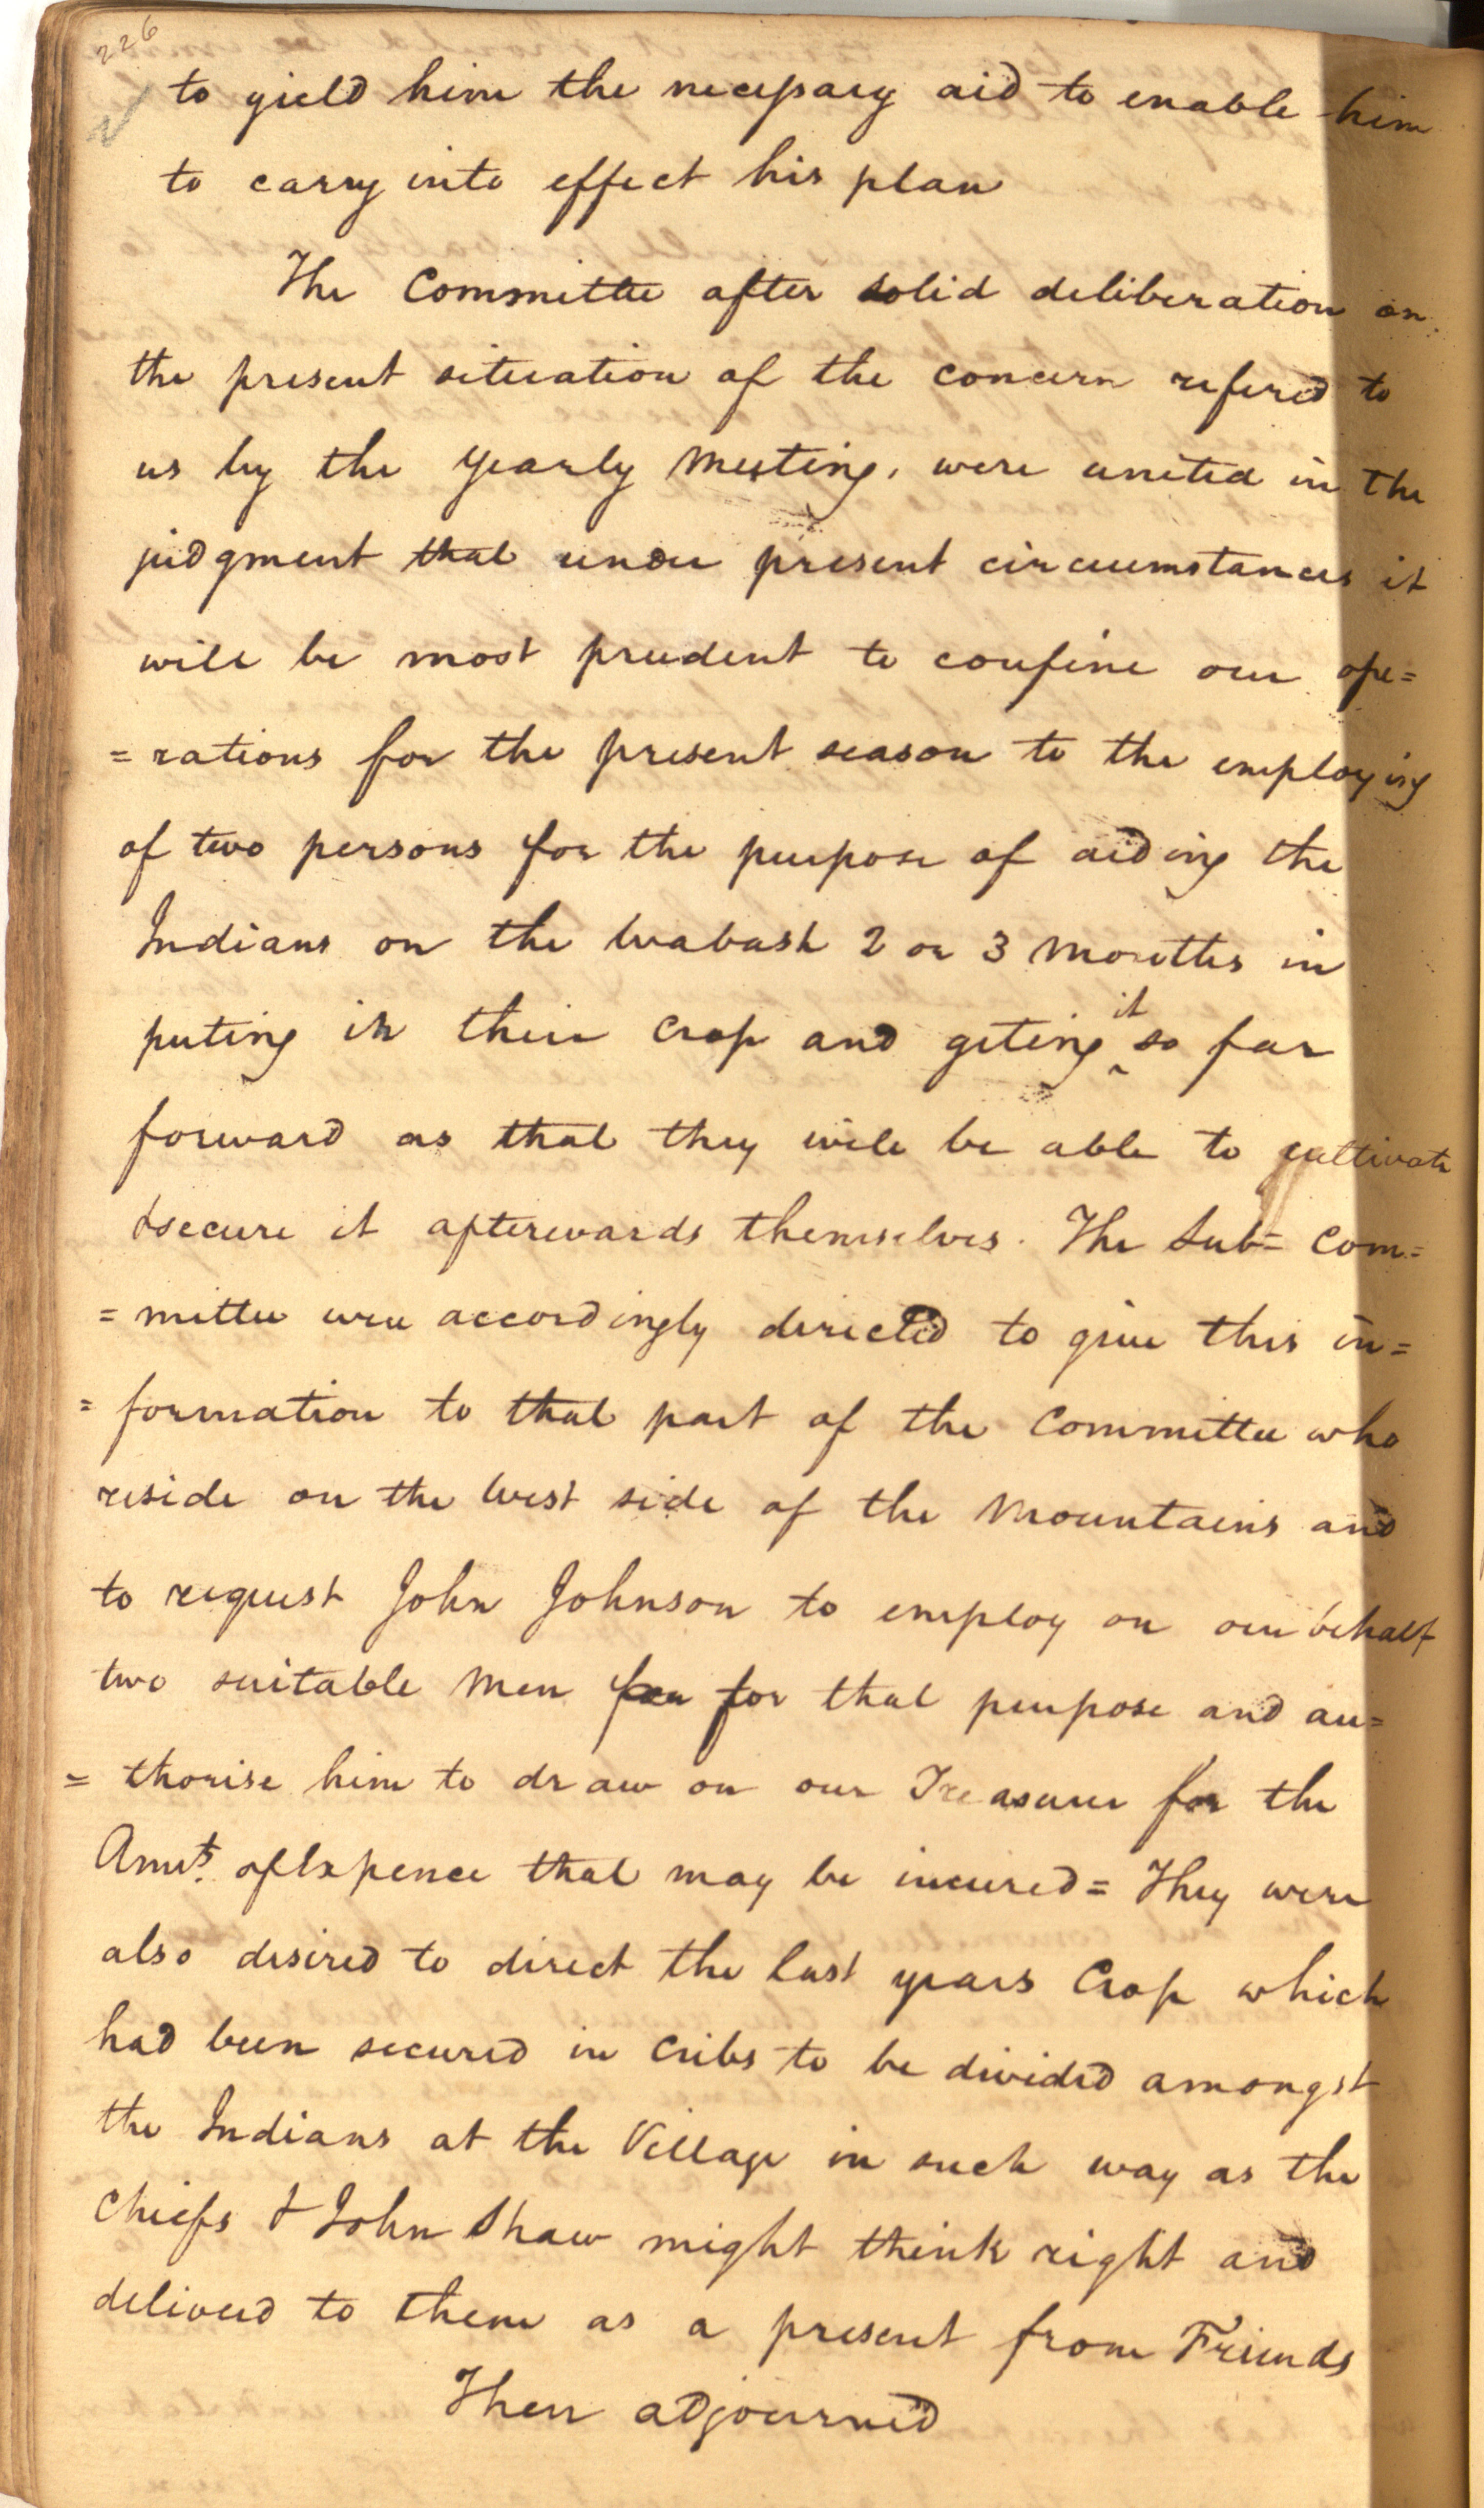 226
to yield him the necessary aid to enable him
to carry into effect his plan
The Committee after solid deliberation on
the present situation of the concern refered to
us by the Yearly Meeting, were united in the
judgment that under present circumstances it
will be most prudent to confine our ope=
=rations for the present season to the employing
of two persons for the purpose of aiding the
Indians on the Wabash 2 or 3 Months in
puting in their Crop and geting it so far
forward as that they will be able to cultivate
& secure it afterwards themselves. The Sub= Com=
=mittee were accordingly directed to give this in=
=formation to that part of the Committee who
reside on the West side of the Mountains and
to request John Johnson to employ on our behalf
two suitable Men for for that purpose and au=
=thorise him to draw on our Treasurer for the
Amt. of Expence that may be incured= They were
also desired to direct the last years Crop which
had been secured in Cribs to be divided amongst
the Indians at the Village in such way as the
Chiefs & John Shaw might think right and
deliverd to them as a present from Friends
Then adjourned